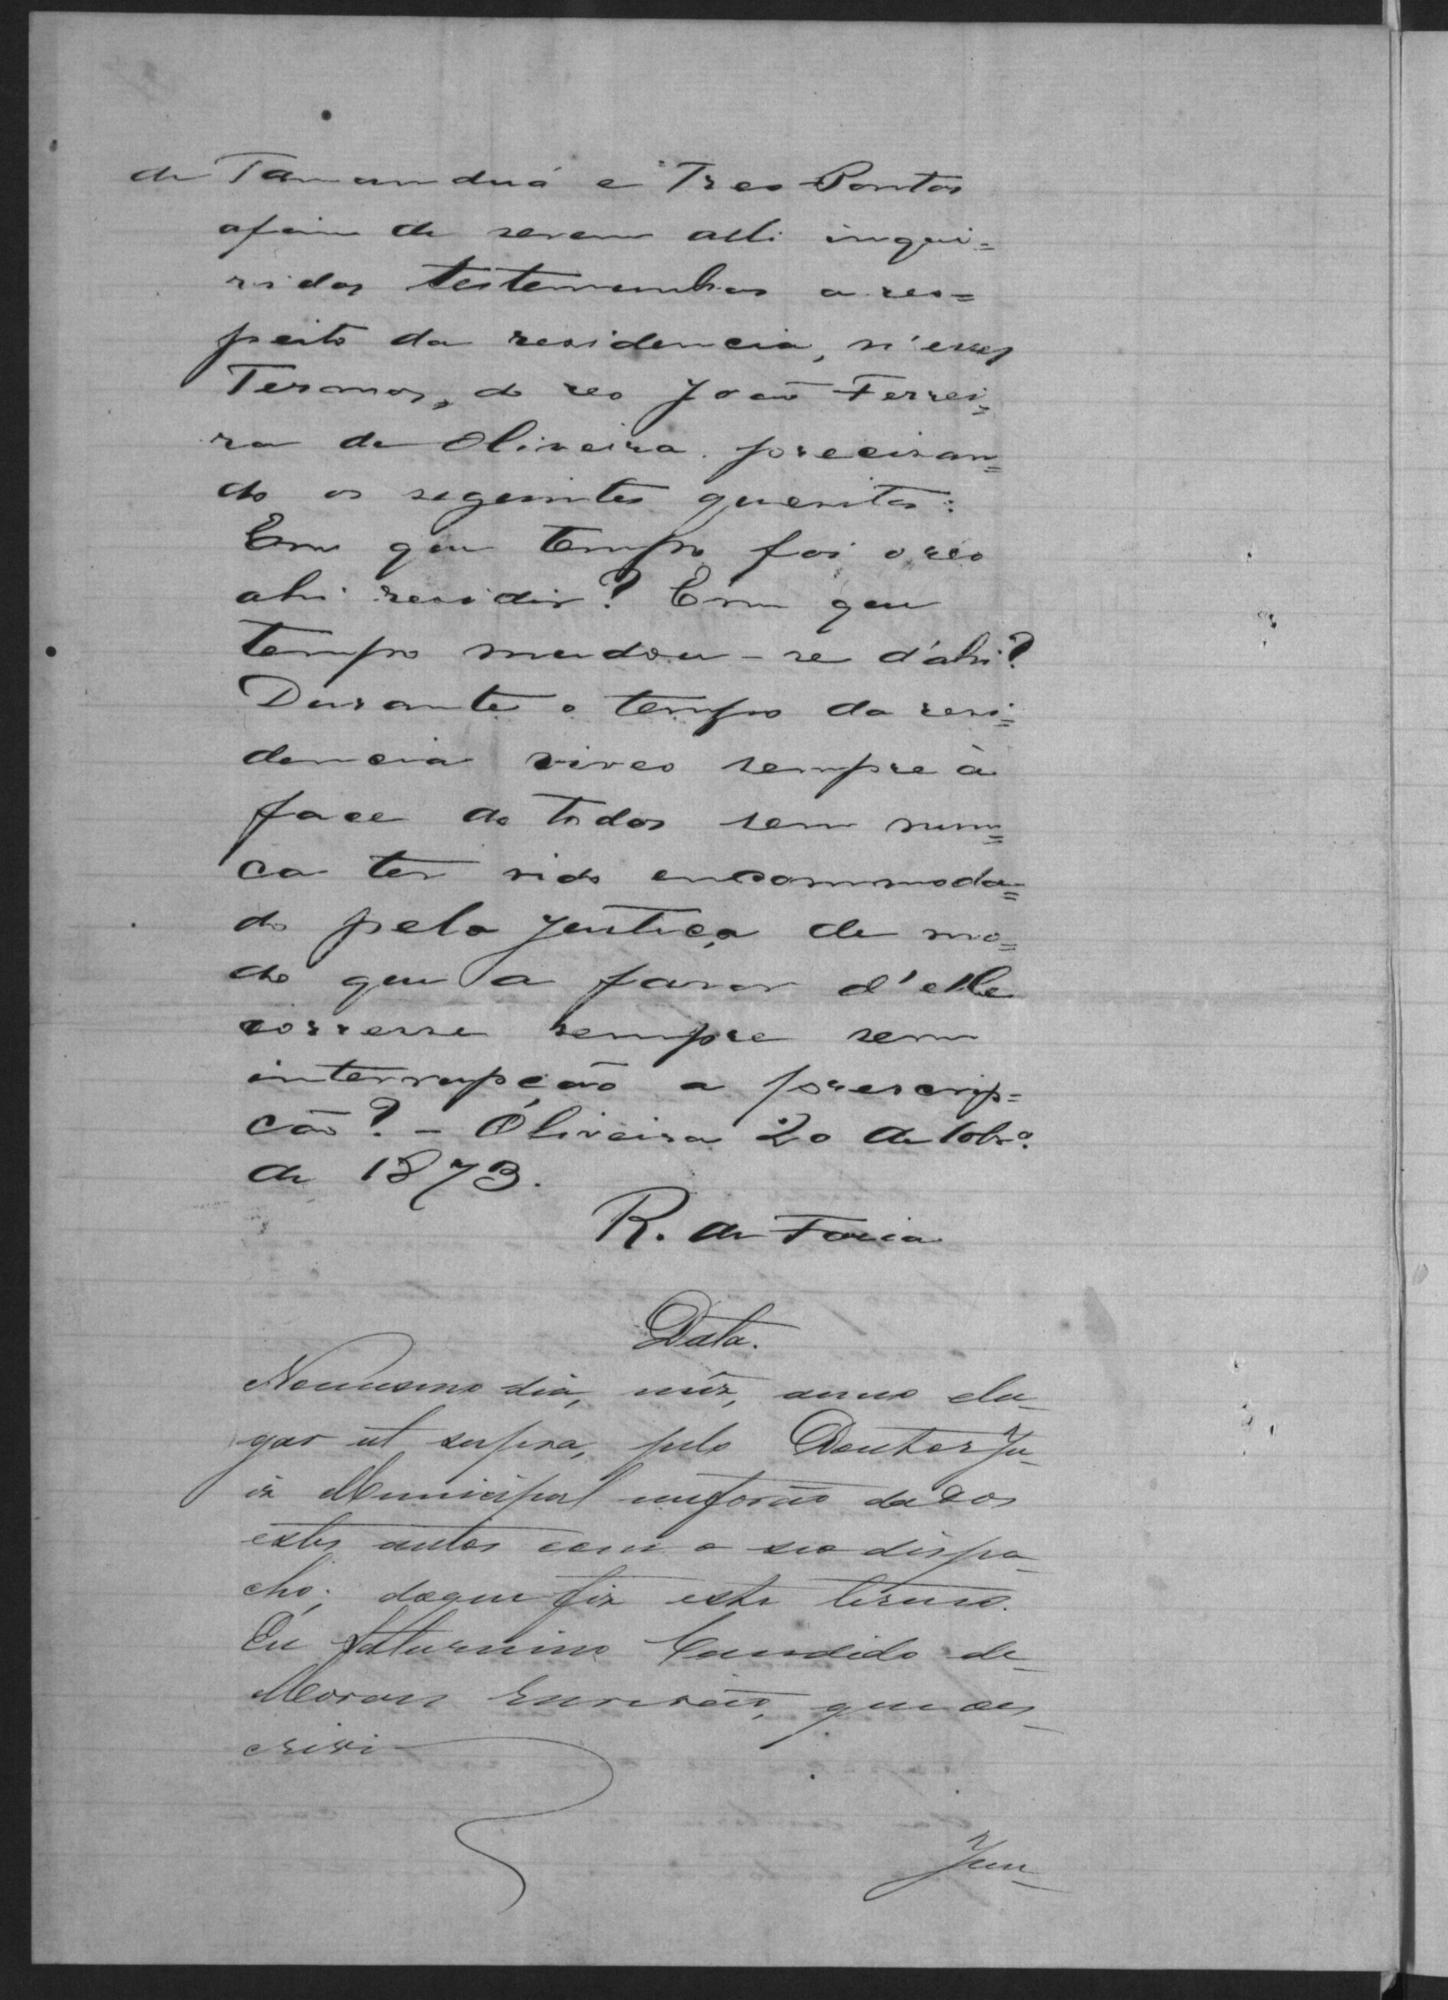 de Tamanduá e Tres Pontas
afim de serem alli inqui=
ridas testemunhas a res=
peito da residencia, n'esses
Termos, do reo João Ferrei=
ra de Oliveira. precisan=
do os seguintes quesitos:
Em que tempo foi o reo
ahi residir? Em que
tempo mudou-se d'ahi?
Durante o tempo da resi=
dencia viveo sempre à
face de todos sem nun=
ca ter sido encommoda=
do pela justiça de mo=
do que a favor d'elle
corresse sempre sem
interrupção a prescrip=
cão? - Oliveira 20 de 10br.º
de 1873.
R. de Faria
Data.
No mesmo dia, mêz, anno e lu-
gar ut supra, pelo Doutor Ju-
iz Municipal me forão dados
estes autos com o seo dispa-
cho; do que fiz este termo.
Eu Saturnino Candido de
Moraes Escrivão, que o es-
crivi
Jun-